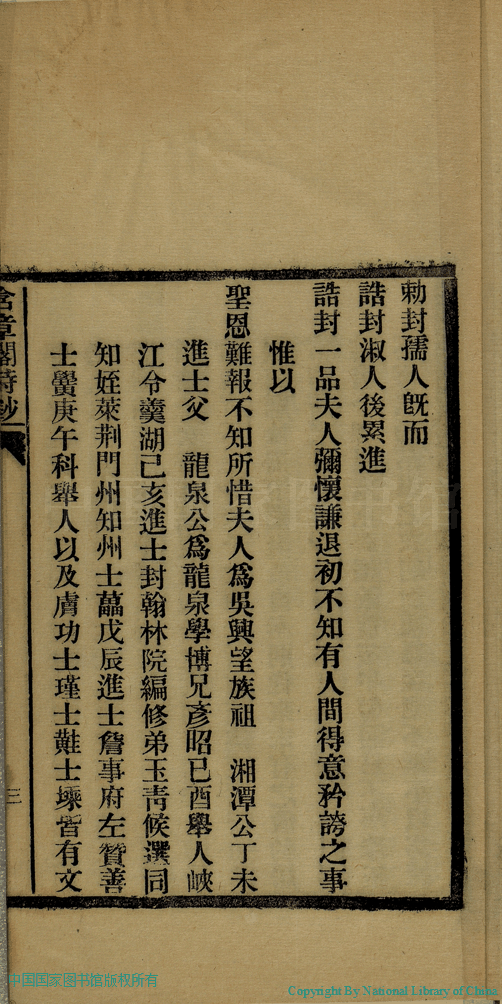 勅封孺人既而
誥封淑人後累進
誥封一品夫人彌懷謙退初不知有人間得意矜誇之事
惟以
聖恩難報不知所惜夫人爲吳興望族祖　湘潭公丁未
進士父　龍泉公爲龍泉學博兄彥昭已酉舉人峽
江令羹湖己亥進士封翰林院編修弟玉青候選同
知姪萊荆門州知州士藟戊辰進士詹事府左贊善
士黌庚午科舉人以及膚功士瑾士黈士壕皆有文
含章閣詩鈔
三
中国国家图书馆版权所有
Copyright By National Library of China